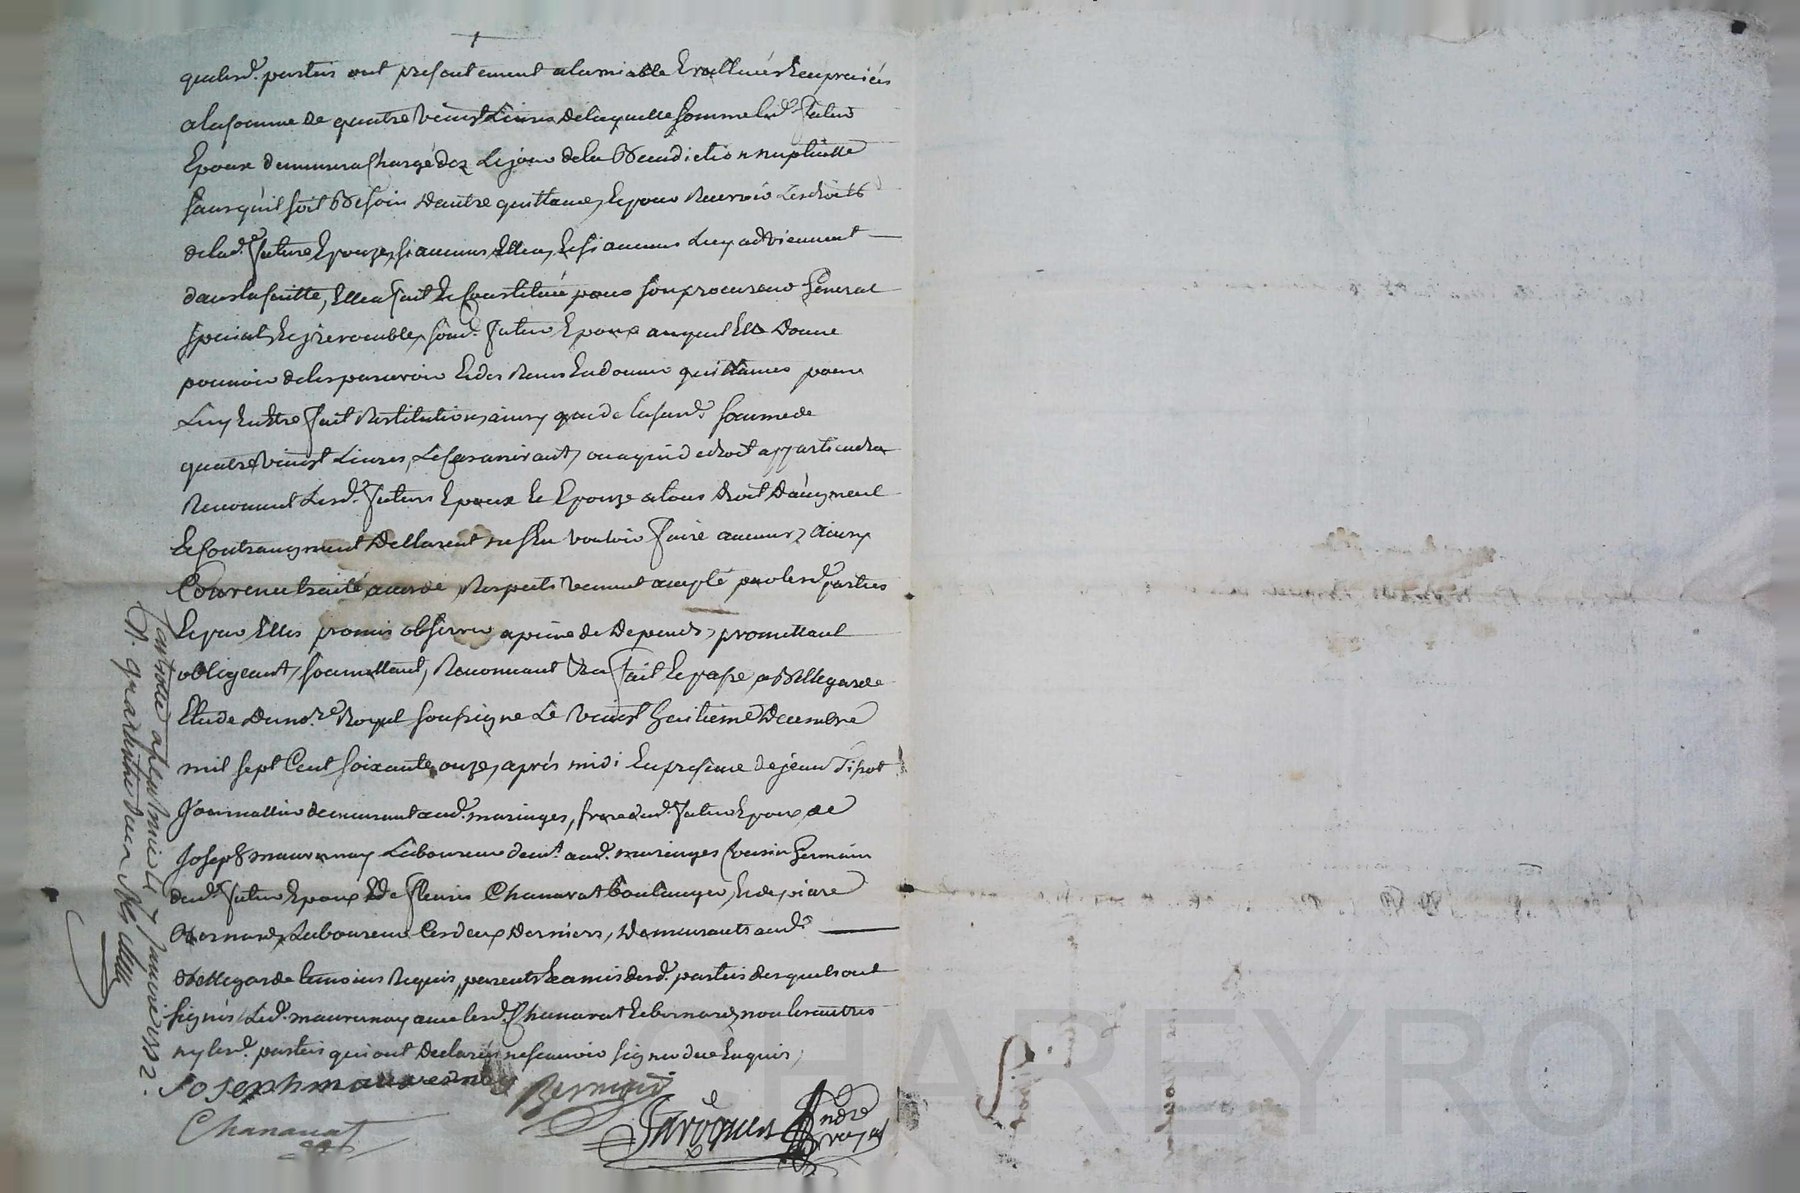 quelesd. parties ont presentement alamiable Evalluées En preciées
alasomme de quatre vaingt Livres delaquelle somme led. futur
Epoux demeurera chargé dez Lejour dela Benediction nuptialle
sans qu'il soit Besoin dautre quittance, Et pour Recevoir Les droits
delad. future Epouze, si aucuns Ella, Et si aucuns Luy adviennent
dans la suitte, Ellea fait Et Constitué pour son procureur General
special Et jrrevocable, sond. futur Epoux auquel Elle Donne
pouvoir deles parcevoir Et des Reçus En donner quittances pour
Luy En Etre fait Restitution, ainsy que de la susd. somme de
quatre vaingt Livres, Le Cas arrivant, ou a qui de droit appartiendra
Renoncent Lesd. futurs Epoux Et Epouze a tous droit Daugment
Et Contraugment Declarent ne sen vouloir faire aucuns, Ainsy
Convenu traité accordé Respectivement accepté par lesd. parties
Et par Elles promis observer apeine de Depends, promettant
obligeant, soumettant, Renonceant &ca fait Et passé a Bellegarde
Etude du no.re Royal soussigne Le vaingt huitieme Decembre
mil sept Cent soixante onze, après midi En presence de jean Tisot
journallier demeurant aud. maringes, frere dud. futur Epoux, de
Joseph mauvernay Laboureur dem.t aud. maringes Cousin Germain
dud. futur Epoux Et de fleuris Chanavat boulanger, Et de piare
Bernard, Laboureur Ces deux Derniers, Demeurants aud.
Bellegarde temoins Requis, parents Et amis desd. parties desquels ont
signés Led. mauvernay avec lesd. Chanavat Et bernard, non les autres
ny lesd. parties qui ont declarés ne scavoir signer de ce Enquis,
Joseph mauvernay Bernard
Chanavat
André
Controllé a le 7 janvier 1772.
R. quatorze